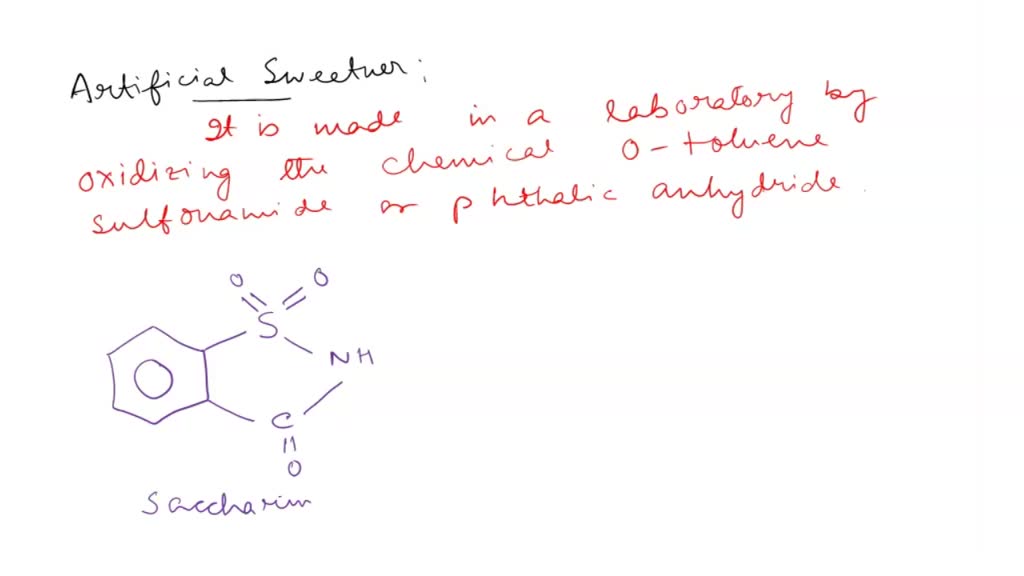 Artificial Sweetner:
It is made in a laboratory by
oxidizing the chemical O-toluene
sulfonamide or phthalic anhydride.
O O
S
NH
C
O
Saccharin